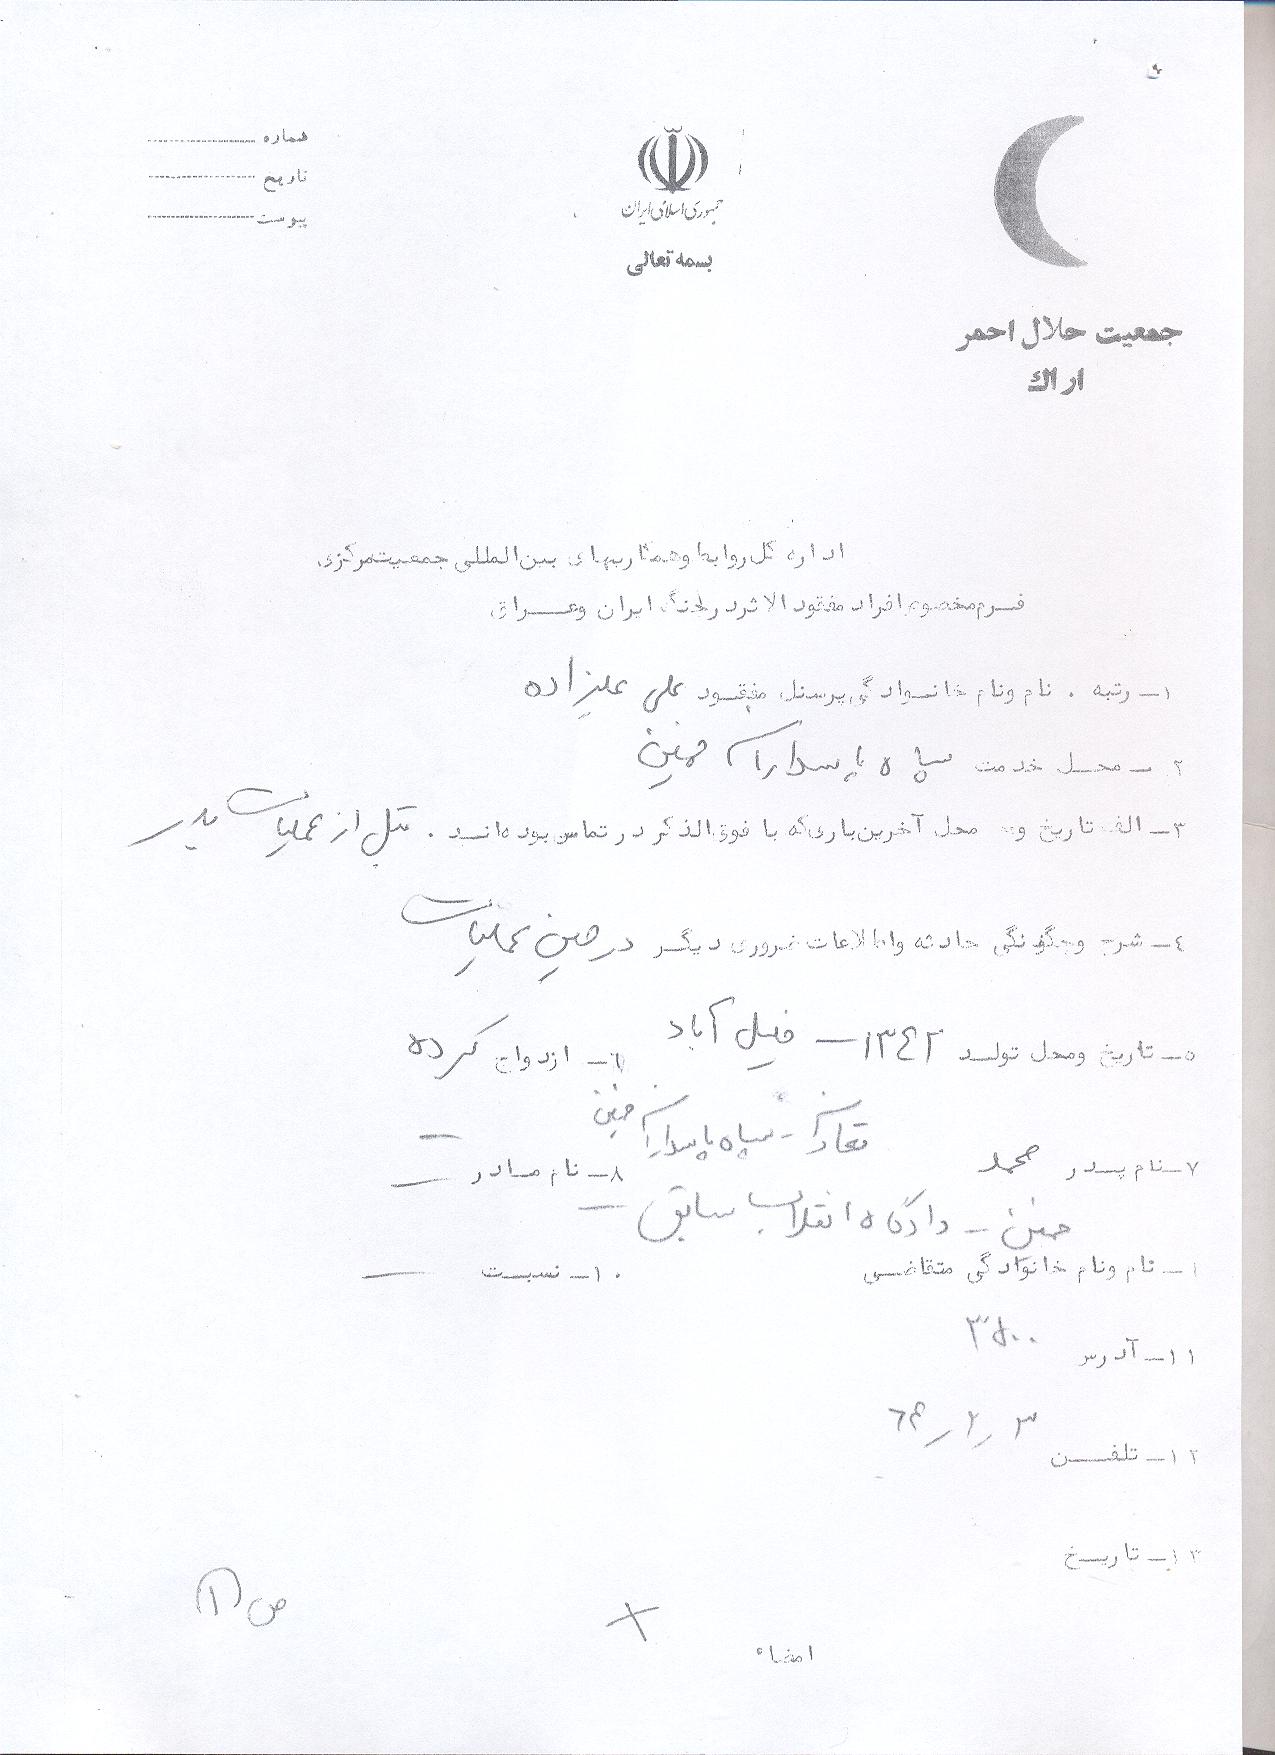 شماره
تاریخ
پیوست
جمهوری اسلامی ایران
بسمه تعالی
جمعیت حلال احمر
اراک
اداره کل روابط وهمکاریهای بین‌المللی جمعیت‌مرکزی
فرم مخصوص افراد مفقود الاثردرجنگ ایران وعراق
۱ـ رتبه . نام ونام خانوادگی پرسنل مفقود علی علیزاده
۲ ـ محل خدمت سپاه پاسداران خمین
۳ـ الف تاریخ و محل آخرین‌باری‌که با فوق‌الذکر در تماس بوده‌اند . قبل از عملیات بدر
٤ـ شرح وچگونگی حادثه واطلاعات ضروری دیگر در حین عملیات
٥ـ تاریخ ومحل تولد ۱۳٤۲ ـ آباد ٦ـ ازدواج کرده
سپاه پاسداران خمین
۷ـ نام پدر محمد ۸ـ نام مادر ـ
خمین ـ دادگاه انقلاب سابق ـ
ـ نام ونام خانوادگی متقاضی ۱۰ـ نسبت ـ
۱۱ـ آدرس
۱۲ـ تلفن
۱۳ـ تاریخ
ص ۱
امضاء